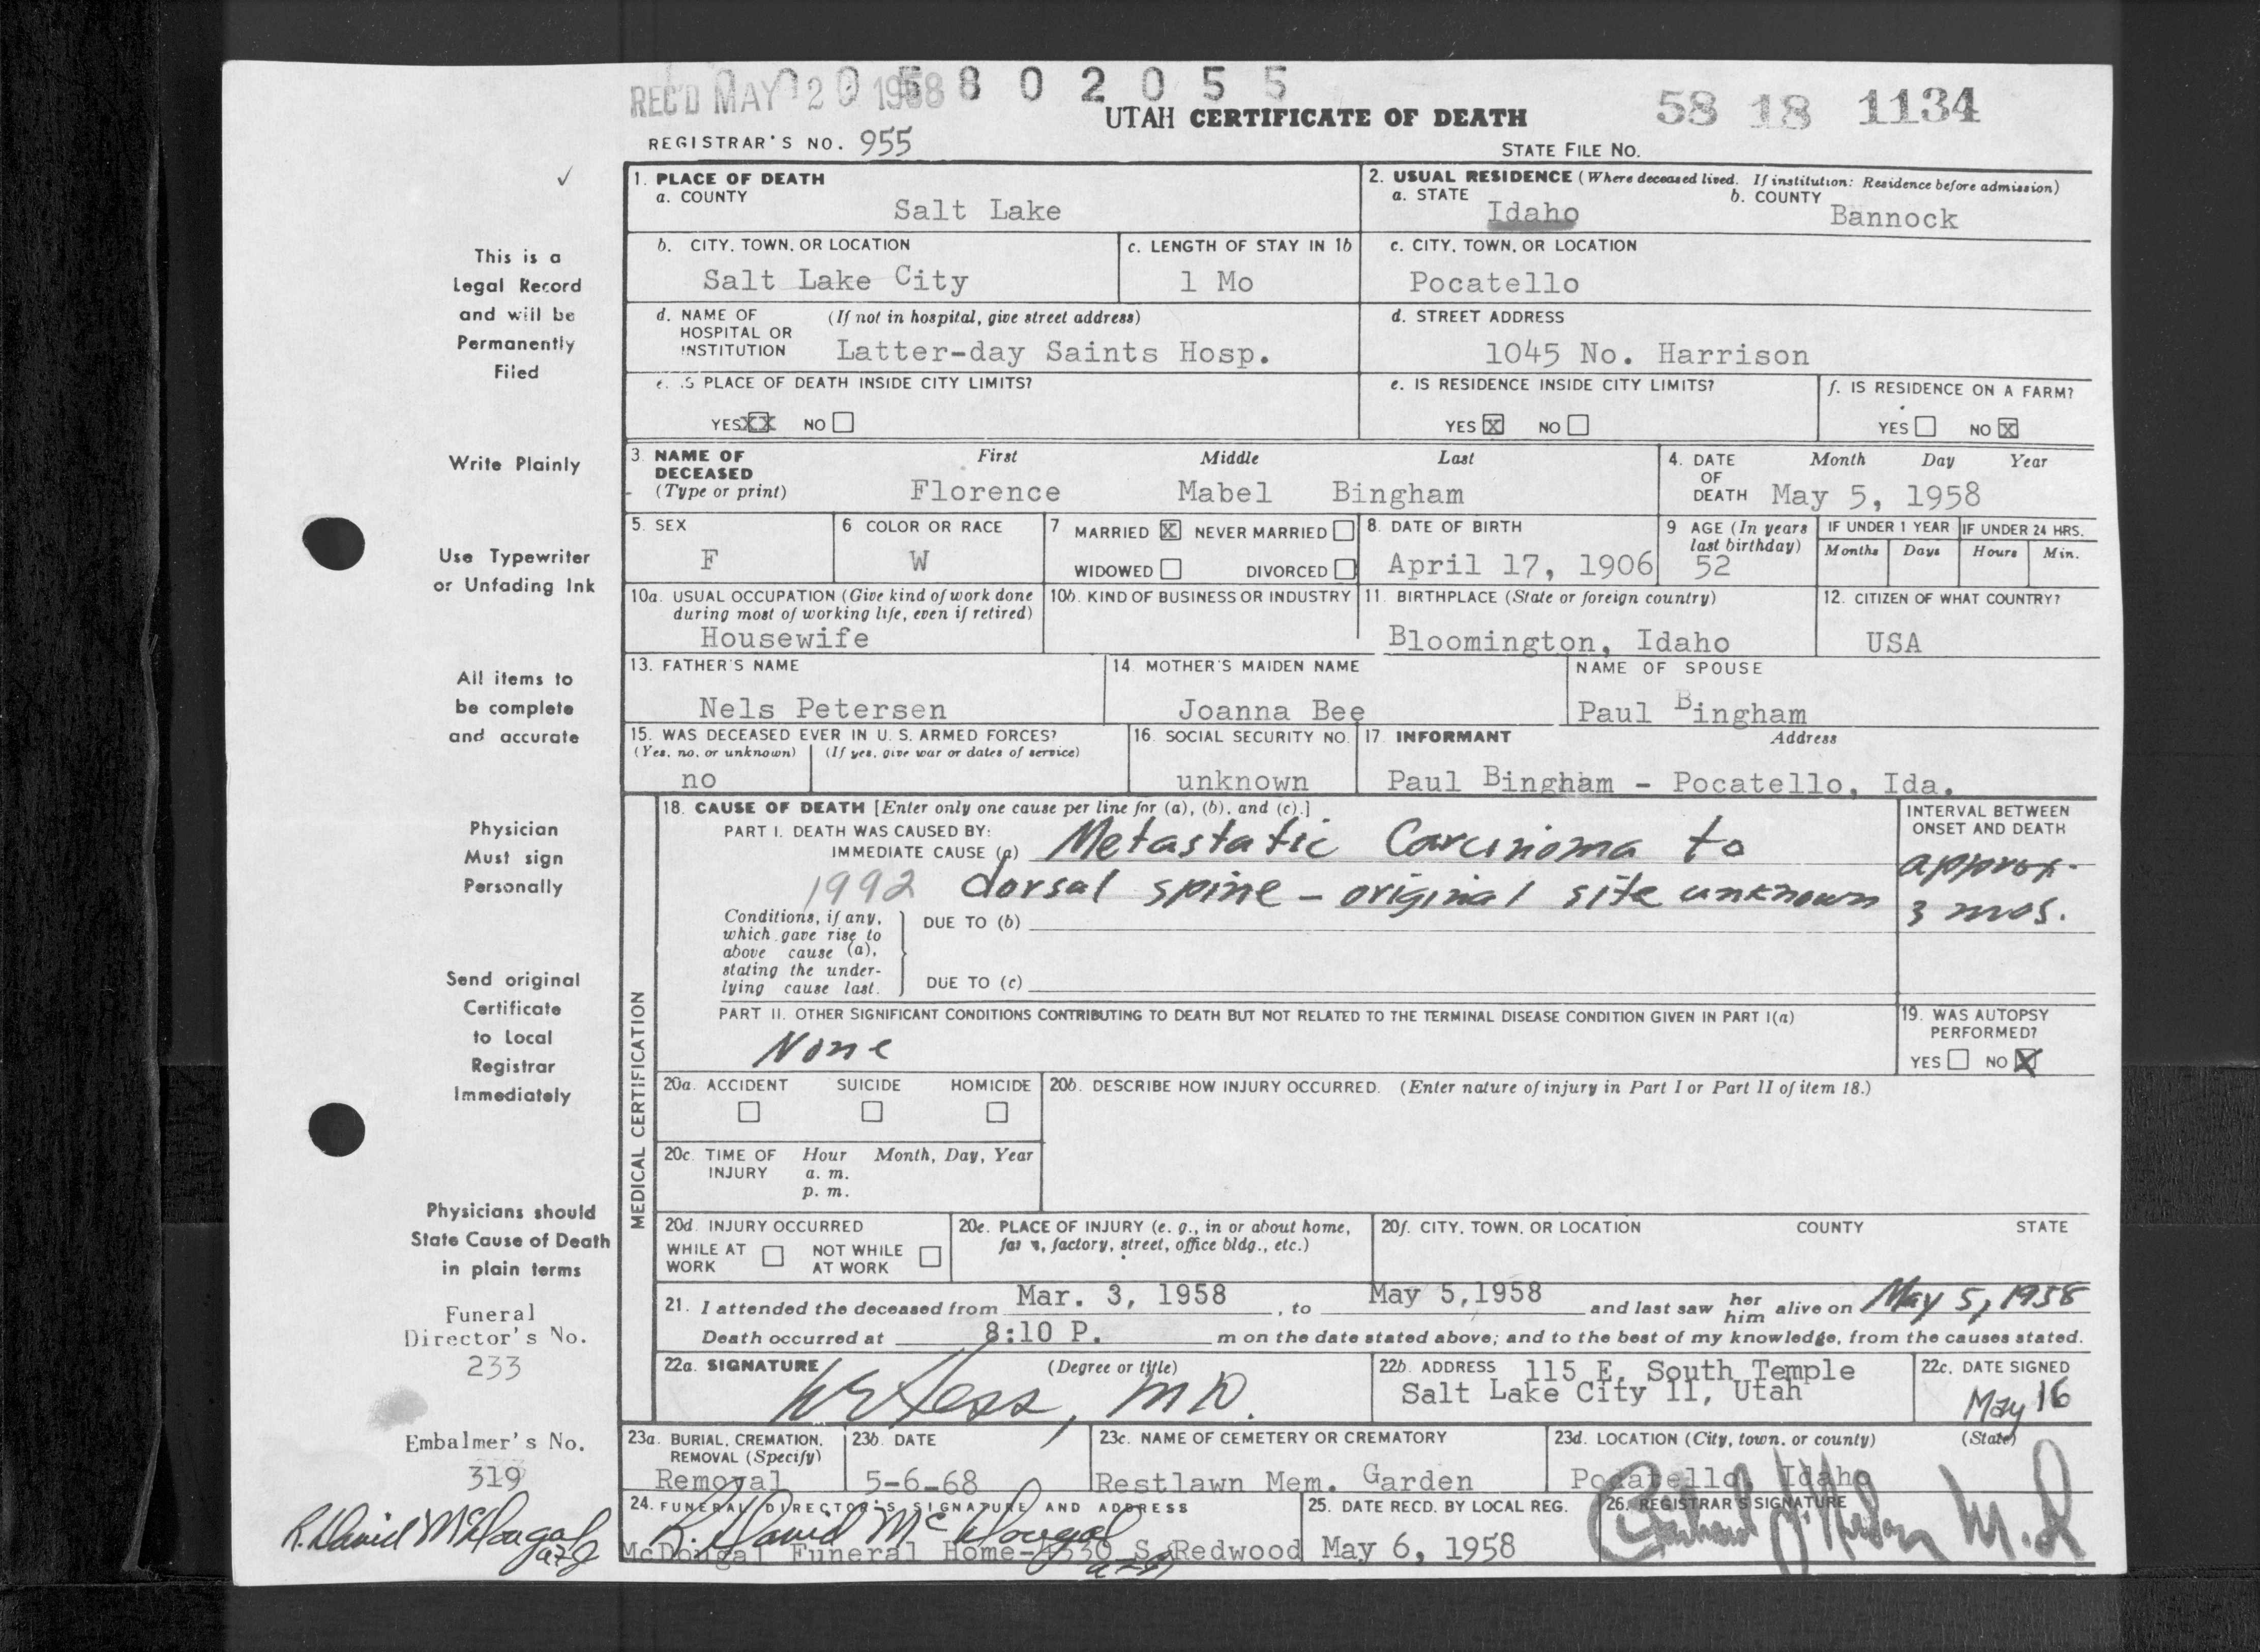 REC'D MAY 20 1958 8 0 2 0 5 5
UTAH CERTIFICATE OF DEATH
58 18 1134
REGISTRAR'S NO. 955
STATE FILE NO.
✓
1. PLACE OF DEATH
a. COUNTY
Salt Lake
2. USUAL RESIDENCE (Where deceased lived. If institution: Residence before admission)
a. STATE Idaho b. COUNTY Bannock
This is a
Legal Record
and will be
Permanently
Filed
b. CITY, TOWN, OR LOCATION
Salt Lake City
c. LENGTH OF STAY IN 1b
1 Mo
c. CITY, TOWN, OR LOCATION
Pocatello
d. NAME OF HOSPITAL OR INSTITUTION (If not in hospital, give street address)
Latter-day Saints Hosp.
d. STREET ADDRESS
1045 No. Harrison
e. IS PLACE OF DEATH INSIDE CITY LIMITS?
YES XX NO
e. IS RESIDENCE INSIDE CITY LIMITS?
YES X NO
f. IS RESIDENCE ON A FARM?
YES NO X
Write Plainly
3. NAME OF DECEASED (Type or print)
First Middle Last
Florence Mabel Bingham
4. DATE OF DEATH Month Day Year
May 5, 1958
Use Typewriter
or Unfading Ink
5. SEX
F
6 COLOR OR RACE
W
7 MARRIED X NEVER MARRIED
WIDOWED DIVORCED
8. DATE OF BIRTH
April 17, 1906
9 AGE (In years last birthday)
52
IF UNDER 1 YEAR IF UNDER 24 HRS.
Months Days Hours Min.
10a. USUAL OCCUPATION (Give kind of work done
during most of working life, even if retired)
Housewife
10b. KIND OF BUSINESS OR INDUSTRY
11. BIRTHPLACE (State or foreign country)
Bloomington, Idaho
12. CITIZEN OF WHAT COUNTRY?
USA
All items to
be complete
and accurate
13. FATHER'S NAME
Nels Petersen
14. MOTHER'S MAIDEN NAME
Joanna Bee
NAME OF SPOUSE
Paul Bingham
15. WAS DECEASED EVER IN U. S. ARMED FORCES?
(Yes, no, or unknown) (If yes, give war or dates of service)
no
16. SOCIAL SECURITY NO.
unknown
17. INFORMANT Address
Paul Bingham - Pocatello, Ida.
Physician
Must sign
Personally
MEDICAL CERTIFICATION
18. CAUSE OF DEATH [Enter only one cause per line for (a), (b), and (c).]
PART I. DEATH WAS CAUSED BY:
IMMEDIATE CAUSE (a) Metastatic Carcinoma to
1992 dorsal spine - original site unknown
INTERVAL BETWEEN
ONSET AND DEATH
approx.
3 mos.
Conditions, if any,
which gave rise to
above cause (a),
stating the under-
lying cause last.
DUE TO (b)
DUE TO (c)
Send original
Certificate
to Local
Registrar
Immediately
PART II. OTHER SIGNIFICANT CONDITIONS CONTRIBUTING TO DEATH BUT NOT RELATED TO THE TERMINAL DISEASE CONDITION GIVEN IN PART I(a)
None
19. WAS AUTOPSY
PERFORMED?
YES NO X
20a. ACCIDENT SUICIDE HOMICIDE
20b. DESCRIBE HOW INJURY OCCURRED. (Enter nature of injury in Part I or Part II of item 18.)
20c. TIME OF INJURY Hour Month, Day, Year
a. m.
p. m.
Physicians should
State Cause of Death
in plain terms
20d. INJURY OCCURRED
WHILE AT WORK NOT WHILE AT WORK
20e. PLACE OF INJURY (e. g., in or about home,
farm, factory, street, office bldg., etc.)
20f. CITY, TOWN, OR LOCATION COUNTY STATE
21. I attended the deceased from Mar. 3, 1958, to May 5,1958 and last saw her him alive on May 5, 1958
Death occurred at 8:10 P. m on the date stated above; and to the best of my knowledge, from the causes stated.
Funeral
Director's No.
233
22a. SIGNATURE (Degree or title)
Hess, MD.
22b. ADDRESS 115 E. South Temple
Salt Lake City 11, Utah
22c. DATE SIGNED
May 16
Embalmer's No.
319
R. David McDougal
23a. BURIAL, CREMATION,
REMOVAL (Specify)
Removal
23b. DATE
5-6-68
23c. NAME OF CEMETERY OR CREMATORY
Restlawn Mem. Garden
23d. LOCATION (City, town, or county) (State)
Pocatello, Idaho
24. FUNERAL DIRECTOR'S SIGNATURE AND ADDRESS
R. David McDougal
McDougal Funeral Home-4330 S. Redwood
25. DATE RECD. BY LOCAL REG.
May 6, 1958
26. REGISTRAR'S SIGNATURE
M.D.